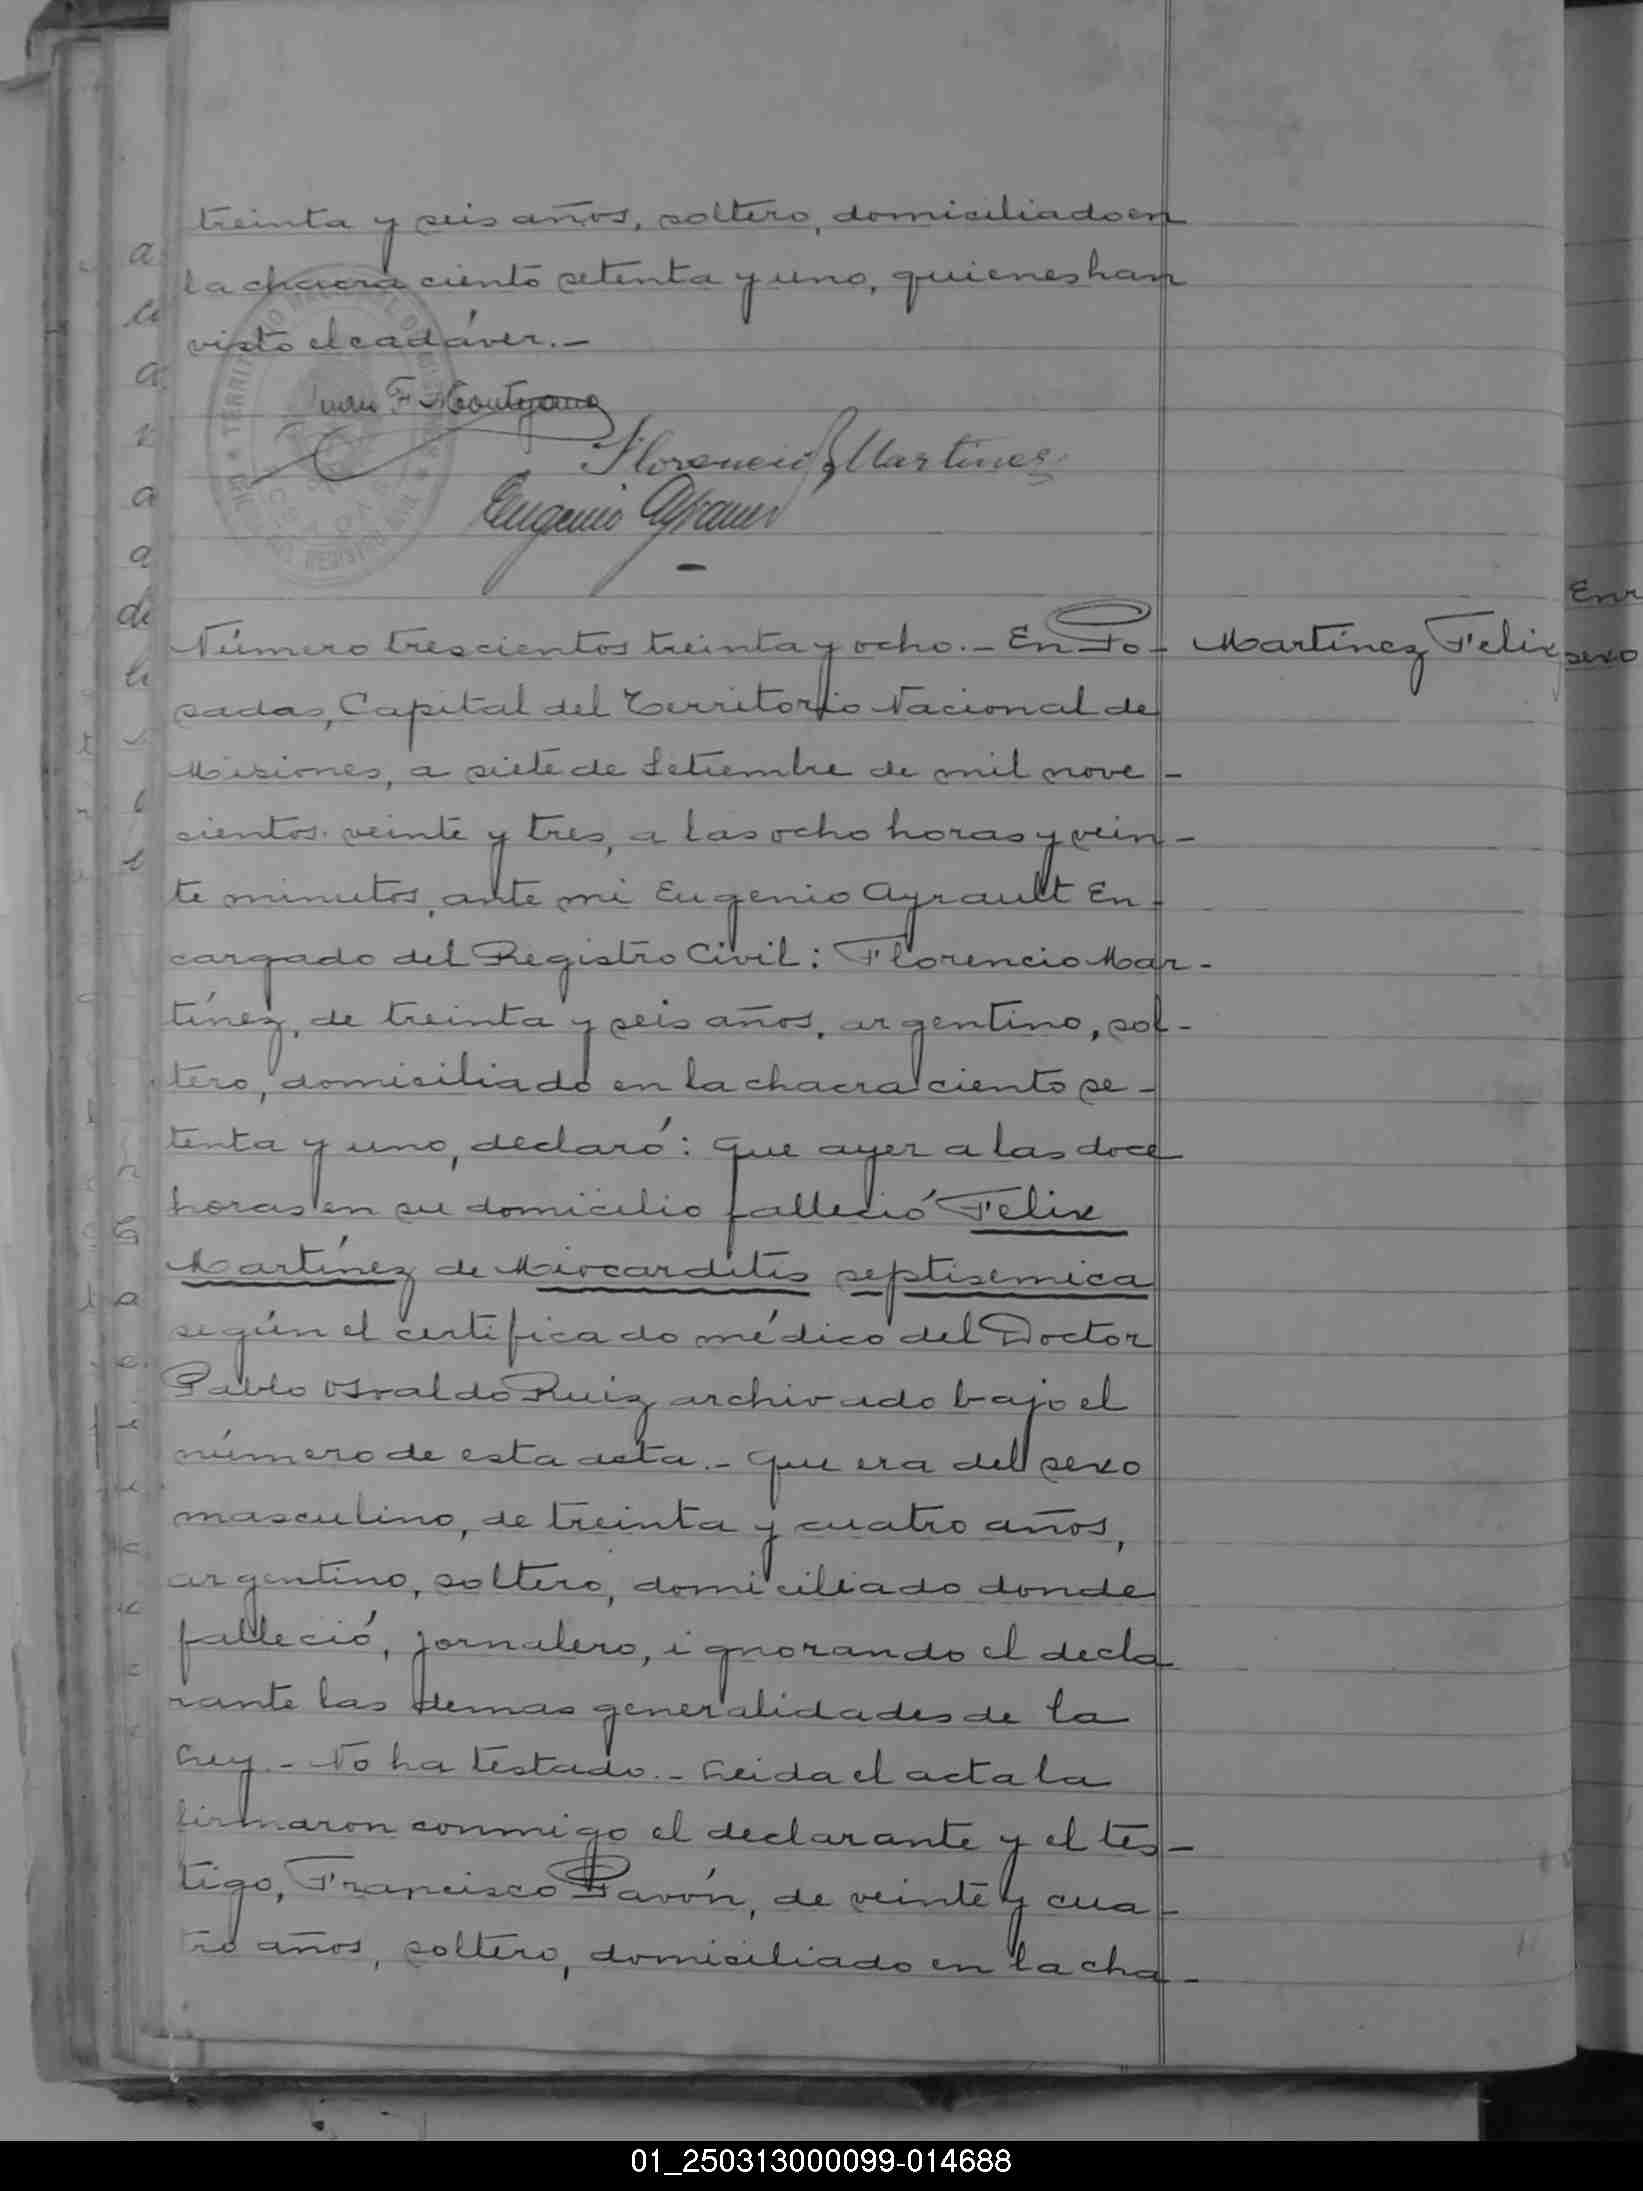 treinta y seis años, soltero, domiciliado en
la chacra ciento setenta y uno, quienes han
visto el cadáver.-
Juan F
Florencio Martinez
Eugenio Ayrault
Número trescientos treinta y ocho.- En Po-
Martínez Felix
sadas, Capital del Territorio Nacional de
Misiones, a siete de Setiembre de mil nove-
cientos veinte y tres, a las ocho horas y vein-
te minutos, ante mi Eugenio Ayrault En-
cargado del Registro Civil: Florencio Mar-
tínez, de treinta y seis años, argentino, sol-
tero, domiciliado en la chacra ciento se-
tenta y uno, declaró: Que ayer a las doce
horas en su domicilio falleció Felix
Martínez de Miocarditis septisemica
según el certificado médico del Doctor
Pablo Osvaldo Ruiz archivado bajo el
número de esta acta.- Que era del sexo
masculino, de treinta y cuatro años,
argentino, soltero, domiciliado donde
falleció, jornalero, ignorando el decla
rante las demas generalidades de la
Ley.- No ha testado.- Leida el acta la
firmaron conmigo el declarante y el tes-
tigo, Francisco Pavón, de veinte y cua-
tro años, soltero, domiciliado en la cha-
01_250313000099-014688